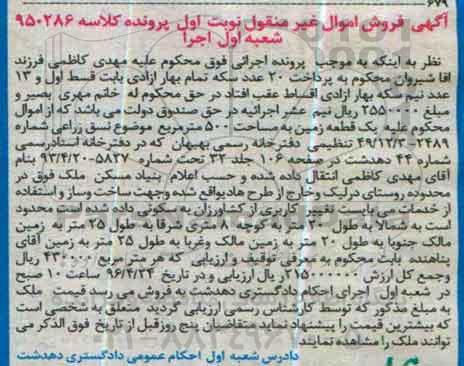 ۶۷۹
آگهی فروش اموال غیر منقول نوبت اول پرونده کلاسه ۹۵۰۲۸۶
شعبه اول اجرا
نظر به اینکه به موجب پرونده اجرائی فوق محکوم علیه مهدی کاظمی فرزند
اقا شیروان محکوم به پرداخت ۲۰ عدد سکه تمام بهار ازادی بابت قسط اول و ۱۳
عدد نیم سکه بهار ازادی اقساط عقب افتاد در حق محکوم له خانم مهری بصیر و
مبلغ ۲۵۵۰۰۰۰ ریال نیم عشر اجرائیه در حق صندوق دولت می باشد که از اموال
محکوم علیه یک قطعه زمین به مساحت ۵۰۰ مترمربع موضوع نسق زراعی شماره
۲۴۸۹-۴۹/۱۲/۳ تنظیمی دفترخانه رسمی بهبهان که در دفترخانه اسنادرسمی
شماره ۴۴ دهدشت در صفحه ۱۰۶ جلد ۳۲ تحت شماره ۵۸۲۷-۹۳/۴/۲۰ بنام
آقای مهدی کاظمی انتقال داده شده و حسب اعلام بنیاد مسکن ملک فوق در
محدوده روستای درلیک و خارج از طرح هادیواقع شده وجهت ساخت وساز و استفاده
از خدمات می بایست تغییر کاربری از کشاورزان به سکوتی داده شده است محدود
است به شمالا به طول ۲۰ متر به کوچه ۸ متری شرقا به طول ۲۵ متر به زمین
مالک جنوبا به طول ۲۰ متر به زمین مالک وغربا به طول ۲۵ متر به زمین آقای
پناهنده بابت محکوم به معرفی توقیف و ارزیابی که هر متر مربع ۴۳۰۰۰۰ ریال
وجمع کل ارزش ۲۱۵۰۰۰۰۰۰ ریال ارزیابی و در تاریخ ۹۶/۴/۲۴ ساعت ۱۰ صبح
در شعبه اول اجرای احکام دادگستری دهدشت به فروش می رسد قیمت ملک
به مبلغ مذکور که توسط کارشناس رسمی ارزیابی گردید متعلق به شخصی است
که بیشترین قیمت را پیشنهاد نماید متقاضیان پنج روزقبل از تاریخ فوق الذکر می
توانند ملک را مشاهده نمایند
دادرس شعبه اول احکام عمومی دادگستری دهدشت